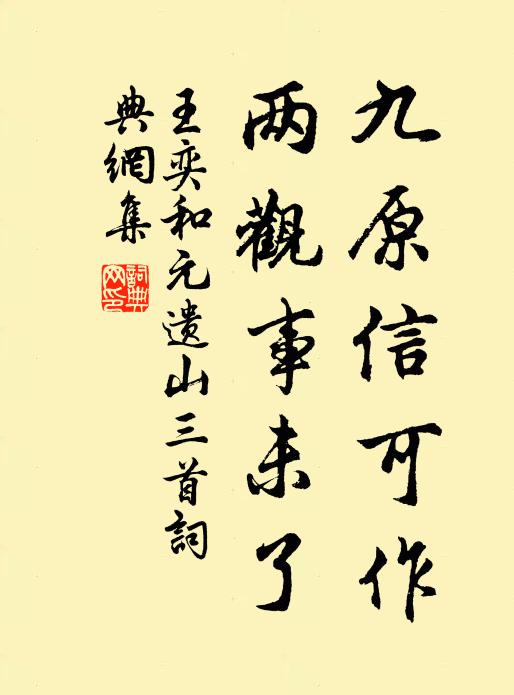 九原信可作
两觀事未了
王奕和元遺山三首詞
典網集
詞典网印